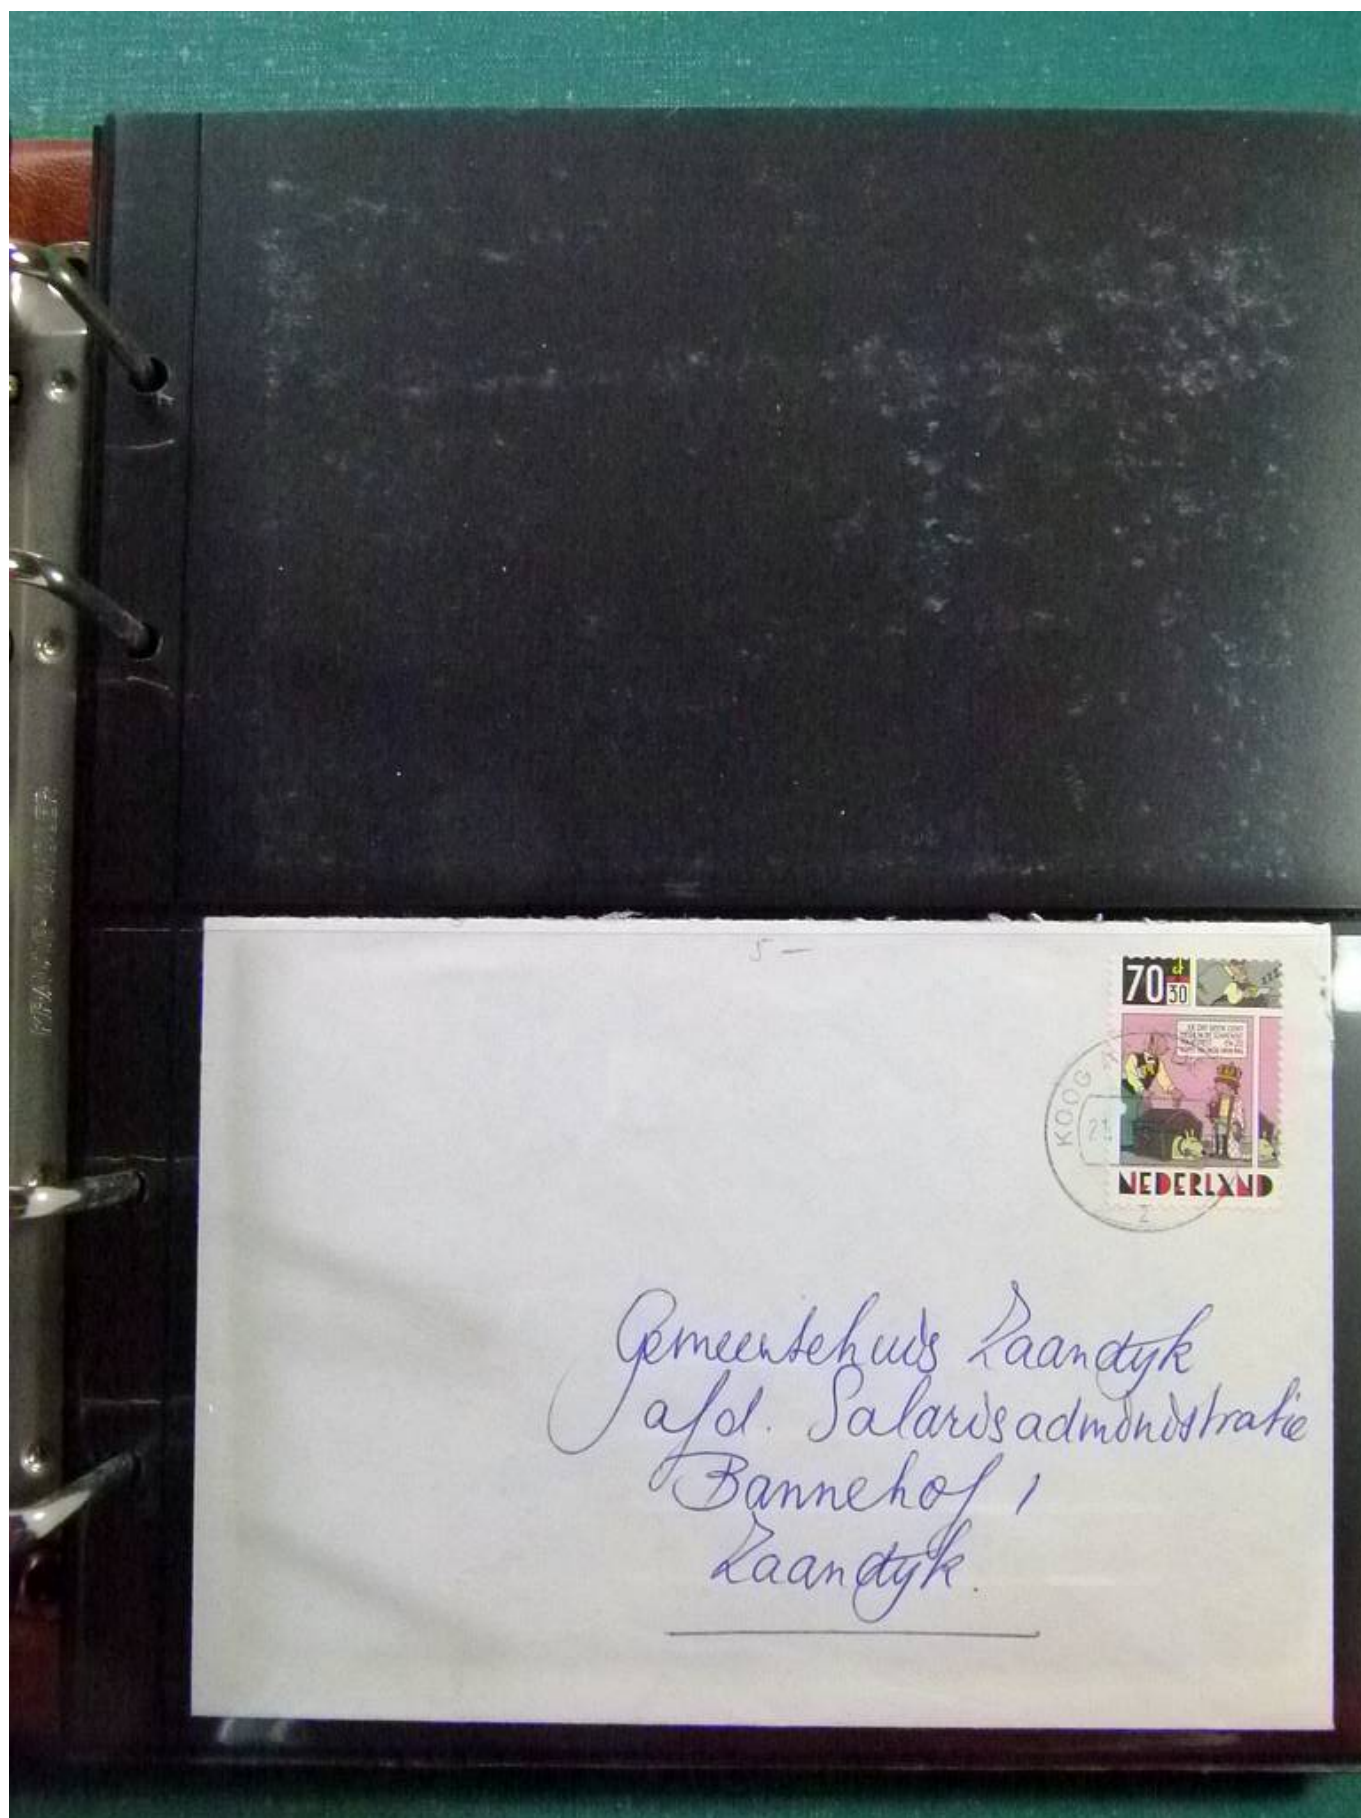 5 —
70 ct
30
zzz
NEDERLAND
KOOG
21
Z
Gemeentehuis Zaandyk
afd. Salarisadministratie
Bannehof 1
Zaandyk.